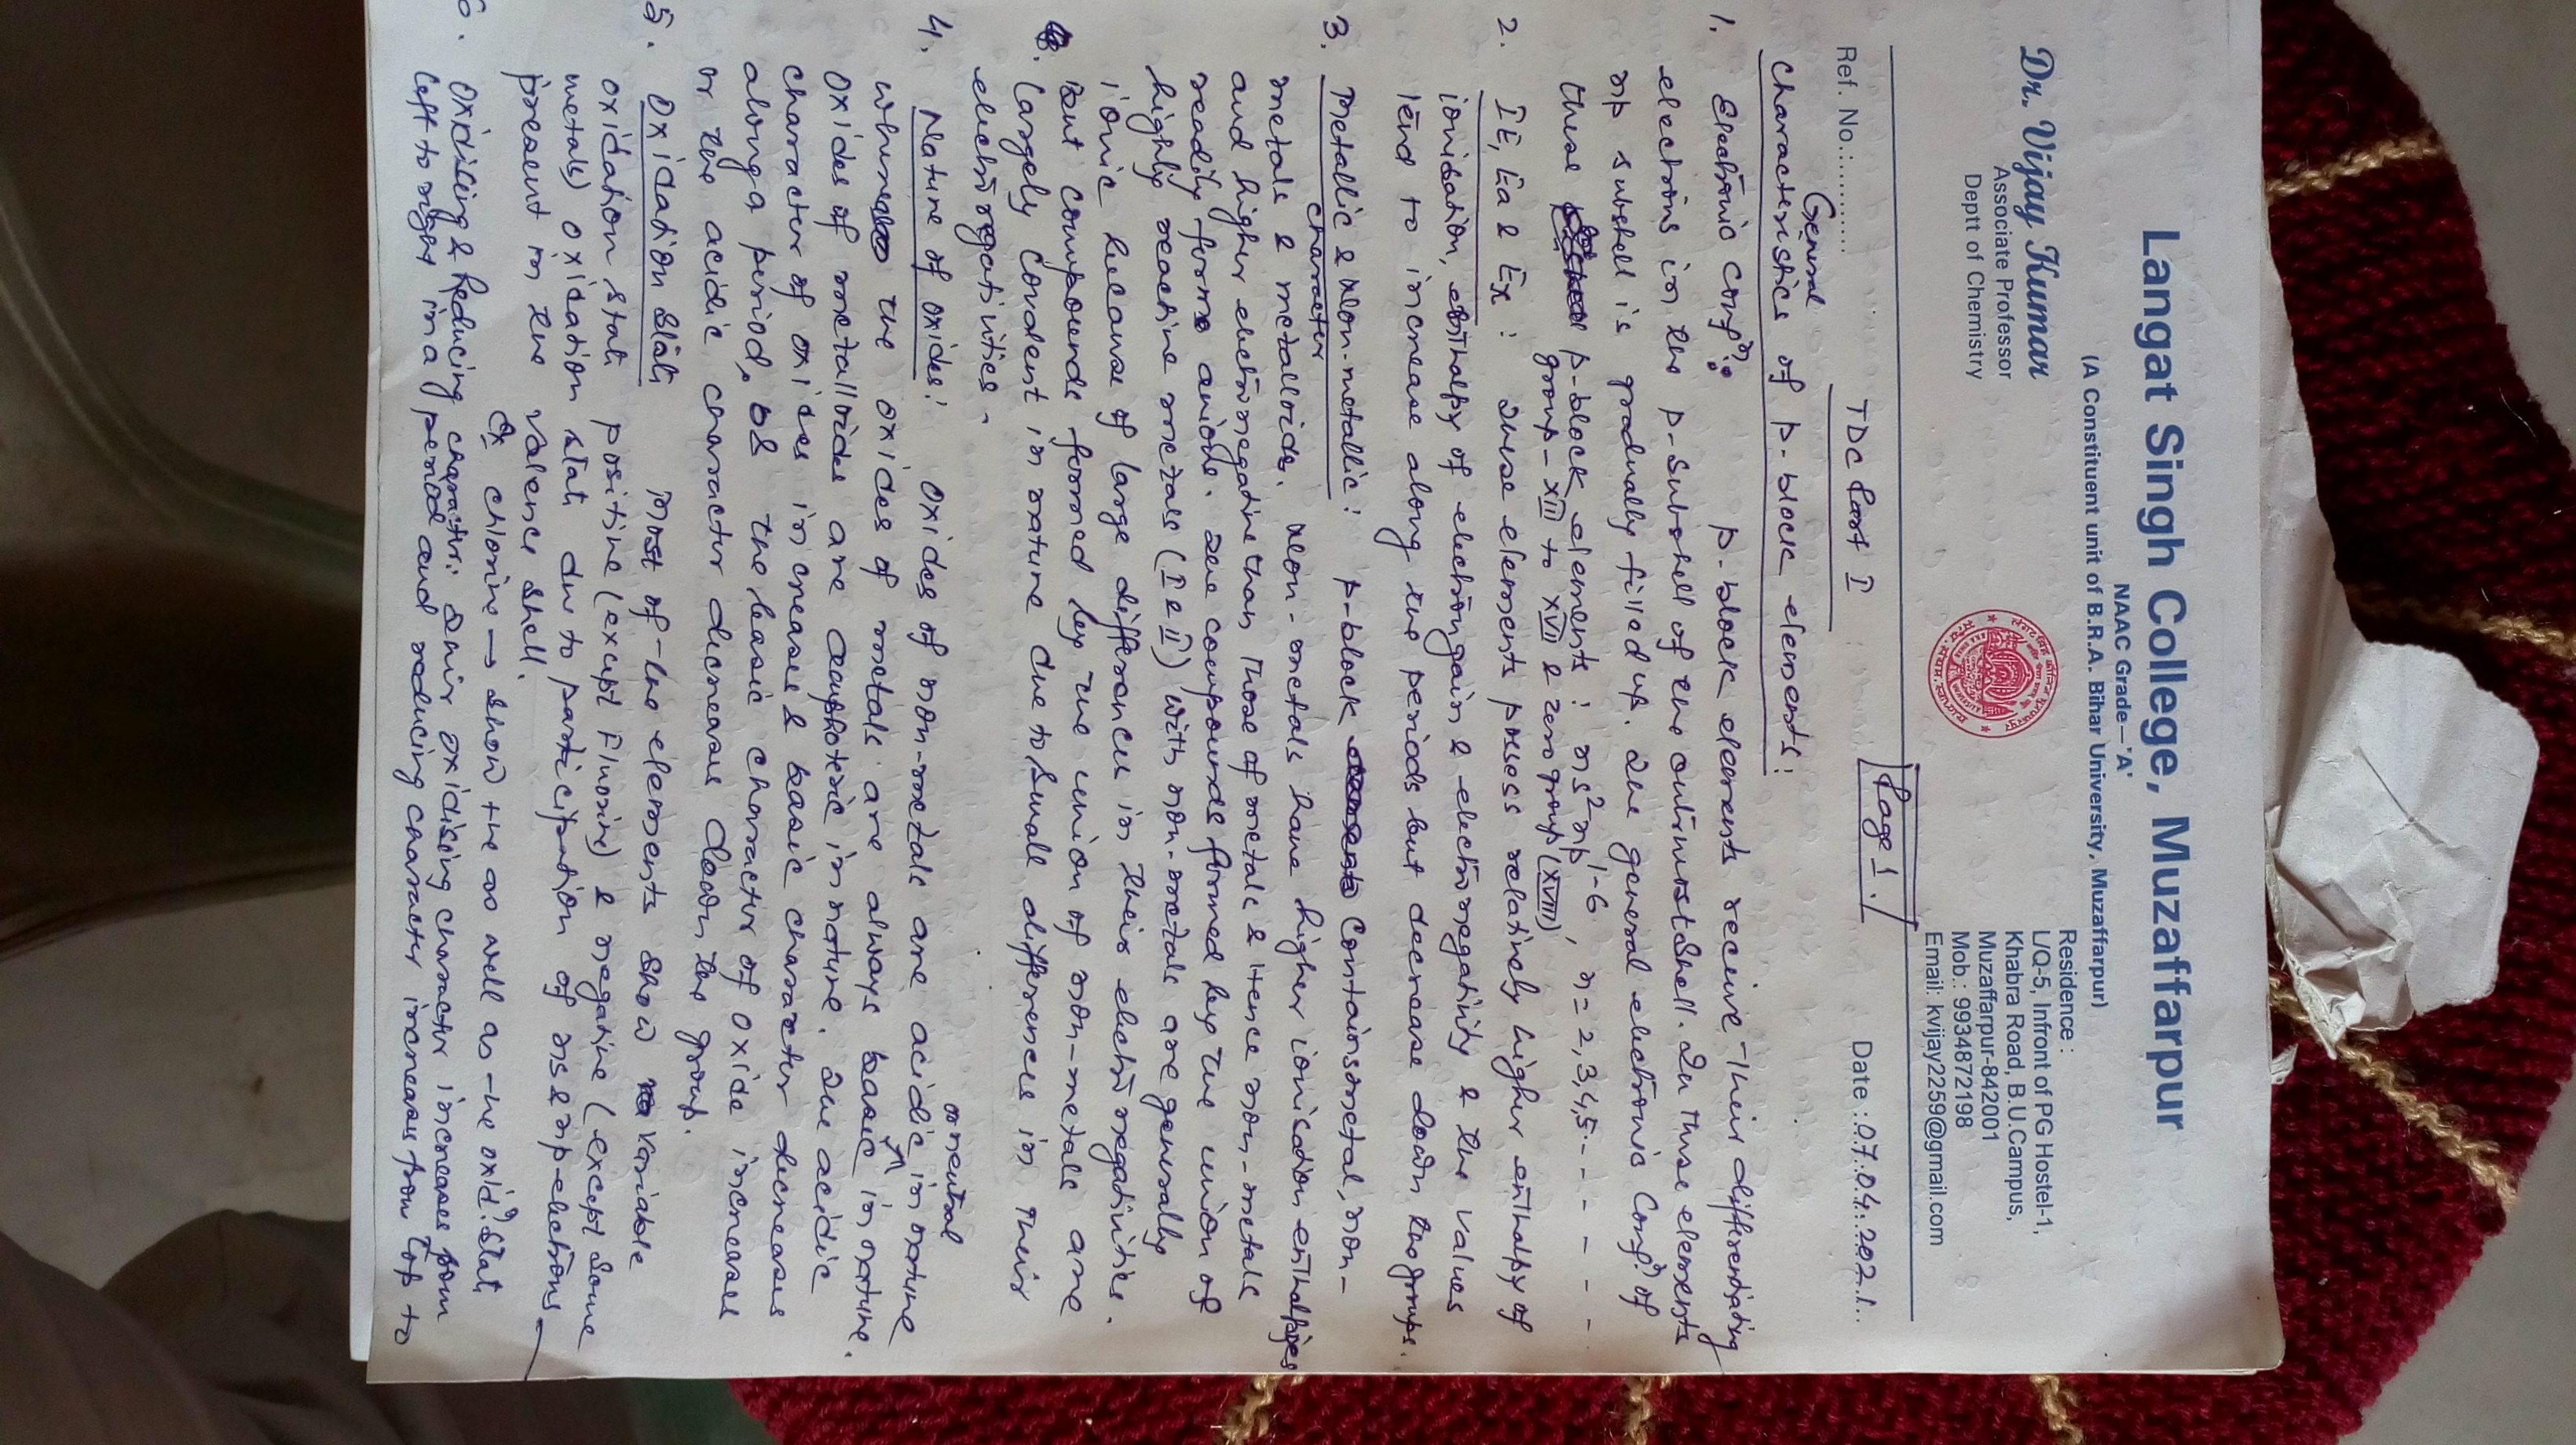 Langat Singh College, Muzaffarpur
NAAC Grade—'A'
(A Constituent unit of B.R.A. Bihar University, Muzaffarpur)
Dr. Vijay Kumar
Associate Professor
Deptt of Chemistry
Residence :
L/Q-5, Infront of PG Hostel-1,
Khabra Road, B.U.Campus,
Muzaffarpur-842001
Mob.: 9934872198
Email: kvijay2259@gmail.com
Ref. No.:..........
TDC Part I
Page 1.
Date : 07.04.2021.
General
Characteristics of p-block elements:
1. Electronic confn: p-block elements receive their differentiating
electrons in the p-subshell of the outermost shell. In these elements
np subshell is gradually filled up. The general electronic confn. of
these p-block elements : ns2 np1-6, n = 2, 3, 4, 5 - - - - - -
group-XIII to XVII & zero group (XVIII)
2. IE, Ea & Ex : These elements possess relatively higher enthalpy of
ionisation, enthalpy of electron gain & electronegativity & the values
tend to increase along the periods but decrease down the groups.
3. Metallic & Non-metallic : p-block contains metal, non-
character
metals & metalloids. Non-metals have higher ionisation enthalpies
and higher electronegative than those of metals & Hence non-metals
readily form anions. The compounds formed by the union of
highly reactive metals (I & II) with non-metals are generally
ionic because of large differences in their electronegativities.
But compounds formed by the union of non-metals are
largely covalent in nature due to small differences in their
electronegativities.
4. Nature of oxides: Oxides of non-metals are acidic in nature
or neutral
whereas the oxides of metals are always basic in nature.
Oxides of metalloids are amphoteric in nature. The acidic
character of oxides increases & basic character decreases
along a period. The basic character of oxide increases
or the acidic character decreases down the group.
5. Oxidation state Most of the elements show variable
oxidation state positive (except Fluorine) & negative (except some
metals) oxidation state due to participation of ns & np-electrons
present in the valence shell.
Ex chlorine → show +ve as well as -ve oxidn. state
6. Oxidising & Reducing character: Their oxidising character increases from
left to right in a period and reducing character increases from top to